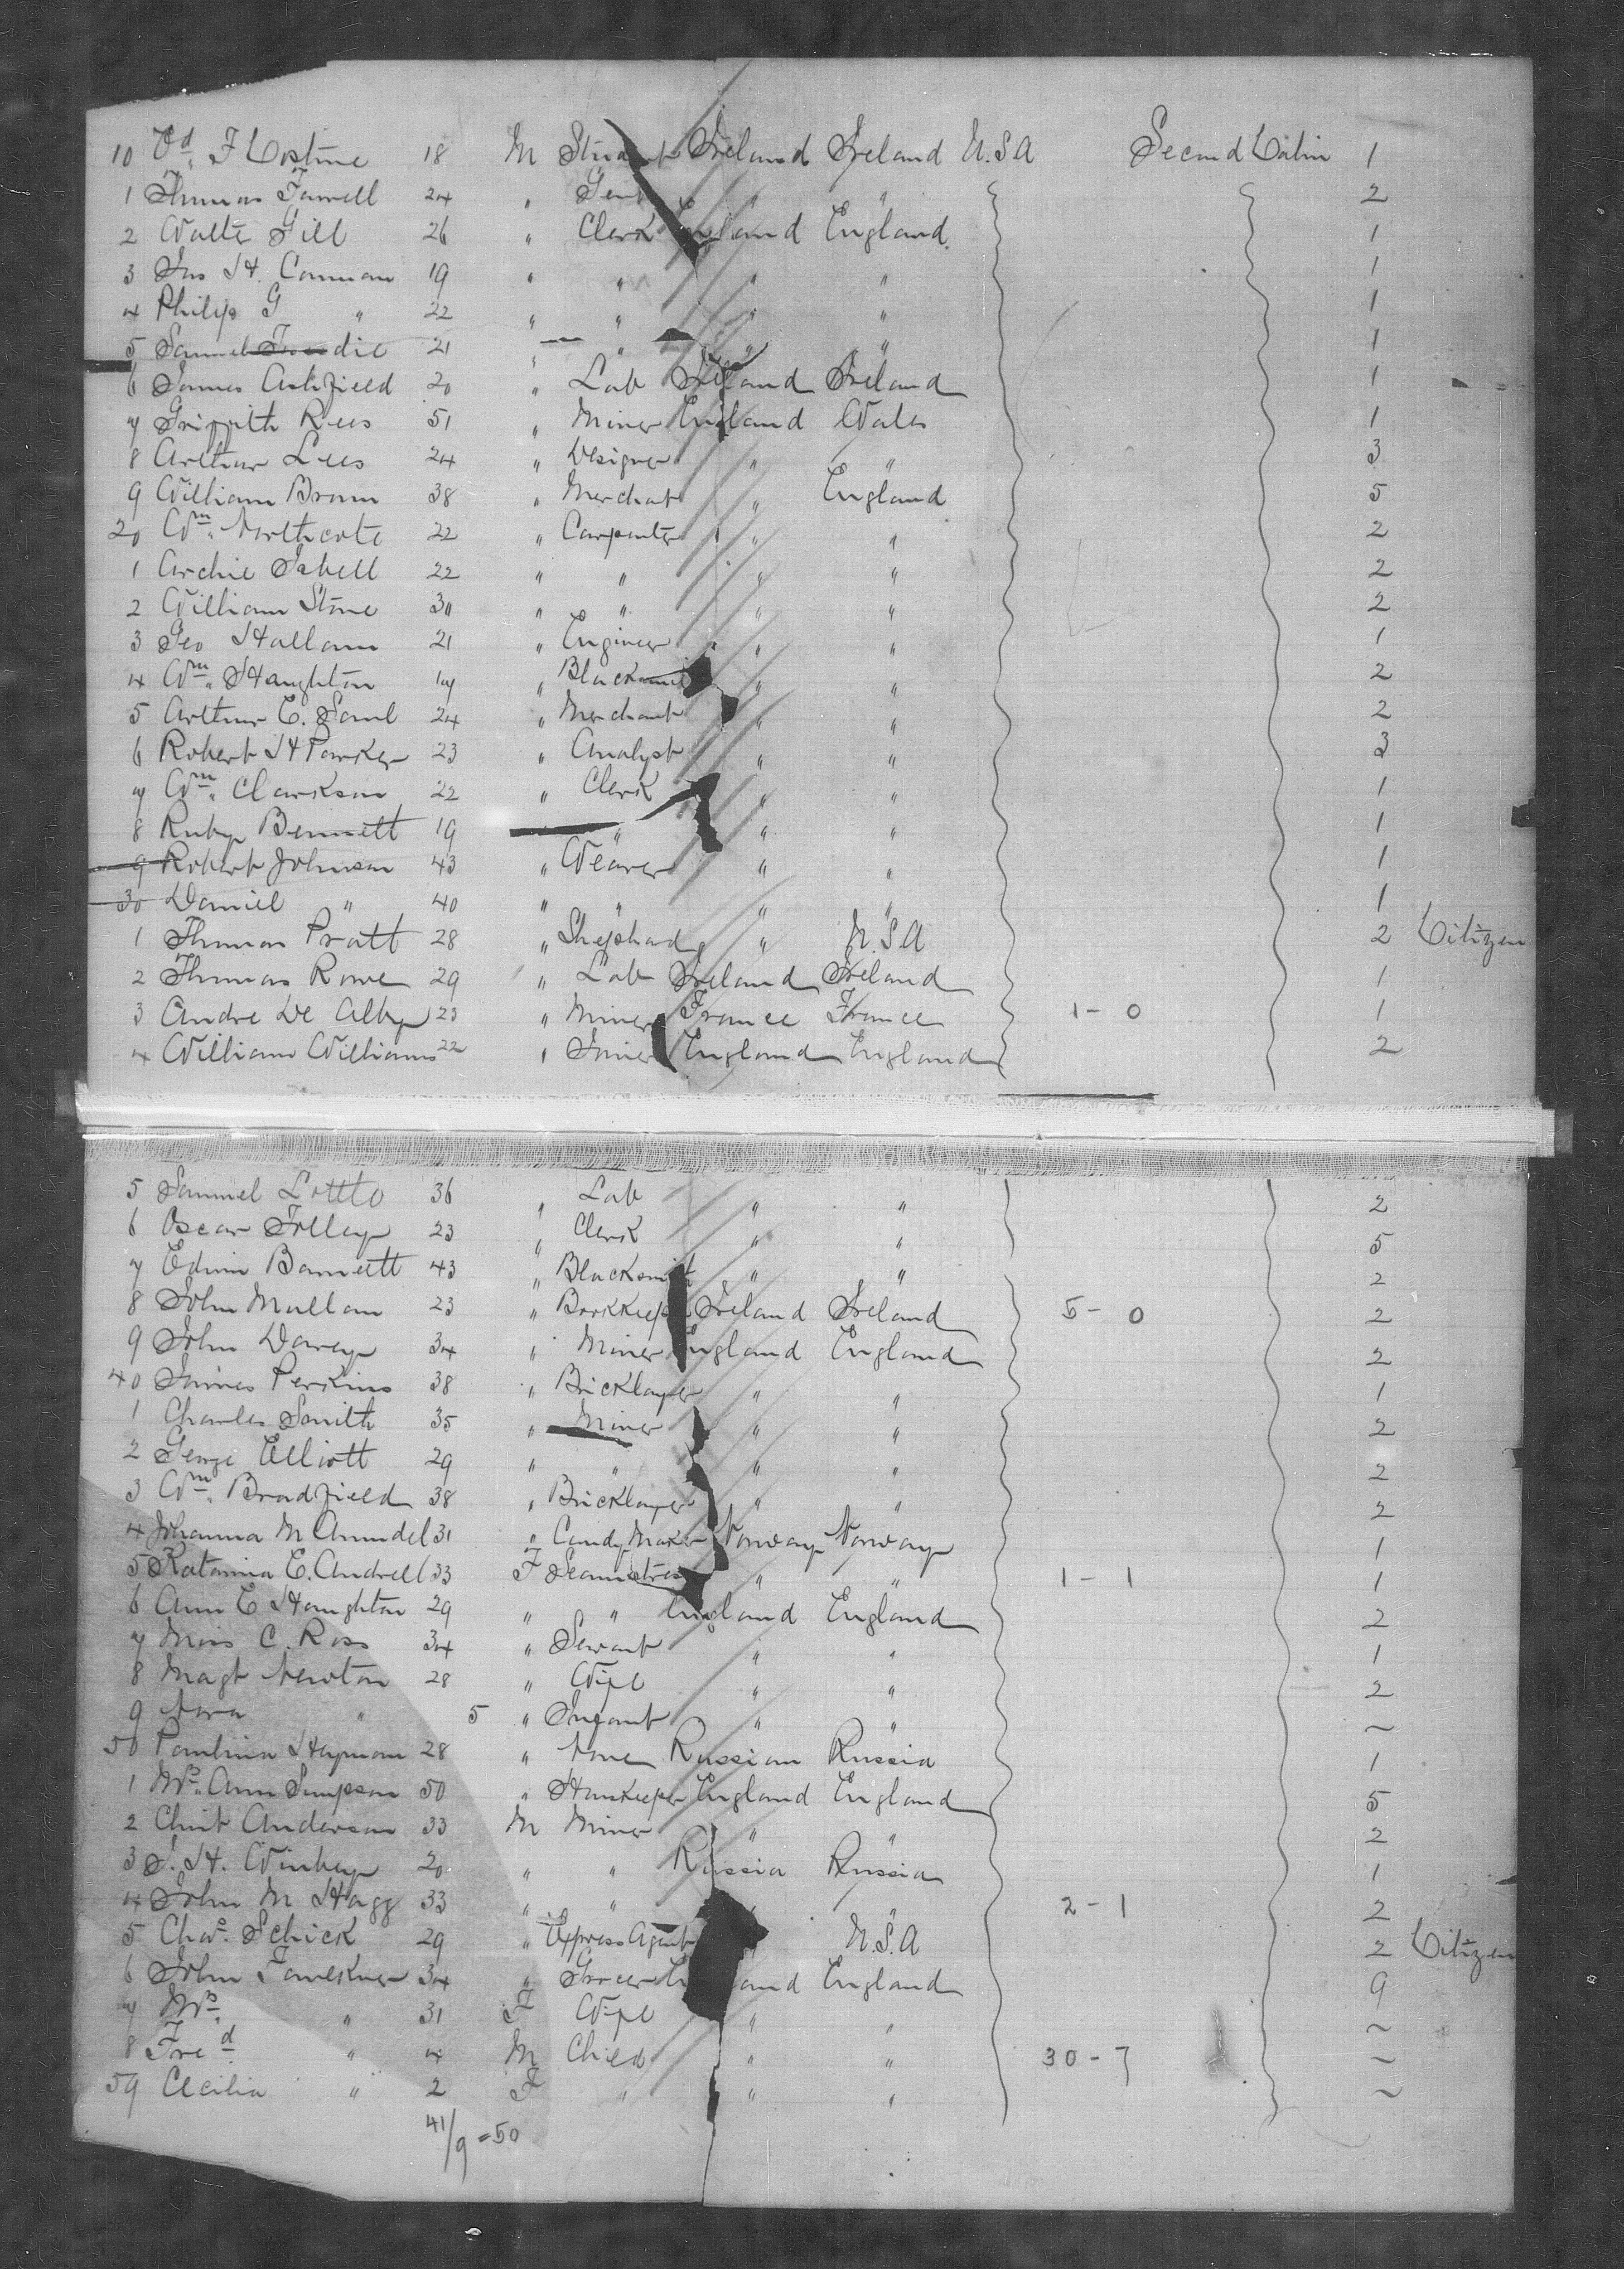 10 Ed. F Costine 18 M Student Ireland Ireland U.S.A Second Cabin 1
1 Thomas Farrell 24 " Gent " " 2
2 Walter Gill 26 " Clerk England England 1
3 Jas H. Conman 19 " " " " 1
4 Philip G " 22 " " " " 1
5 Samuel 21 " " " " 1
6 James Ashfield 20 " Lab Ireland Ireland 1
7 Griffith Rees 51 " Miner England Wales 1
8 Arthur Lees 24 " Designer " " 3
9 William Brown 38 " Merchant " England 5
20 Wm. Northcote 22 " Carpenter " " 2
1 Archie Isbell 22 " " " " 2
2 William Stone 30 " " " " 2
3 Geo Hallam 21 " Engineer " " 1
4 Wm. Haughton 19 " Blacksmith " " 2
5 Arthur E. Saml 24 " Merchant " " 2
6 Robert H Parker 23 " Analyst " " 3
7 Wm. Clarkson 22 " Clerk " " 1
8 Ruby Bennett 19 " " " 1
9 Robert Johnson 43 " Weaver " " 1
30 Daniel " 40 " " " " 1
1 Thomas Pratt 28 " Shephard " U.S.A 2 Citizen
2 Thomas Rowe 29 " Lab Ireland Ireland 1
3 Andre De Alby 23 " Miner France France 1-0 1
4 William Williams 22 " Joiner England England 2
5 Samuel Lottlo 36 " Lab " " 2
6 Oscar Tolley 23 " Clerk " " 5
7 Edwin Barnett 43 " Blacksmith " " 2
8 John Mullan 23 " Bookkeeper Ireland Ireland 5-0 2
9 John Darcy 34 " Miner England England 2
40 James Perkins 38 " Bricklayer " " 1
1 Charles Smith 35 " Miner " " 2
2 George Elliott 29 " " " " 2
3 Wm. Bradfield 38 " Bricklayer " " 2
4 Johanna M Amundel 31 " Candy Maker Norway Norway 1
5 Katarina E. Andrell 33 F Seamstress " " 1-1 1
6 Ann E Haughton 29 " " England England 2
7 Miss C. Ross 34 " Servant " " 1
8 Magt Newton 28 " Wife " " 2
9 Nora " 5 " Infant " " ~
50 Paulina Hayman 28 " None Russian Russia 1
1 Mrs. Ann Simpson 50 " Housekeeper England England 5
2 Christ Anderson 33 M Miner " " 2
3 J. H. Winkey 20 " " Russia Russia 1
4 John M Hagg 33 " " " 2-1 2
5 Chas. Schick 29 " Express Agent " U.S.A 2 Citizen
6 John Fawekner 34 " Grocer England England 9
7 Mrs. " 31 F Wife " " ~
8 Fred " 4 M Child " " 30-7 ~
59 Cecilia " 2 F " " " ~
41/9 = 50